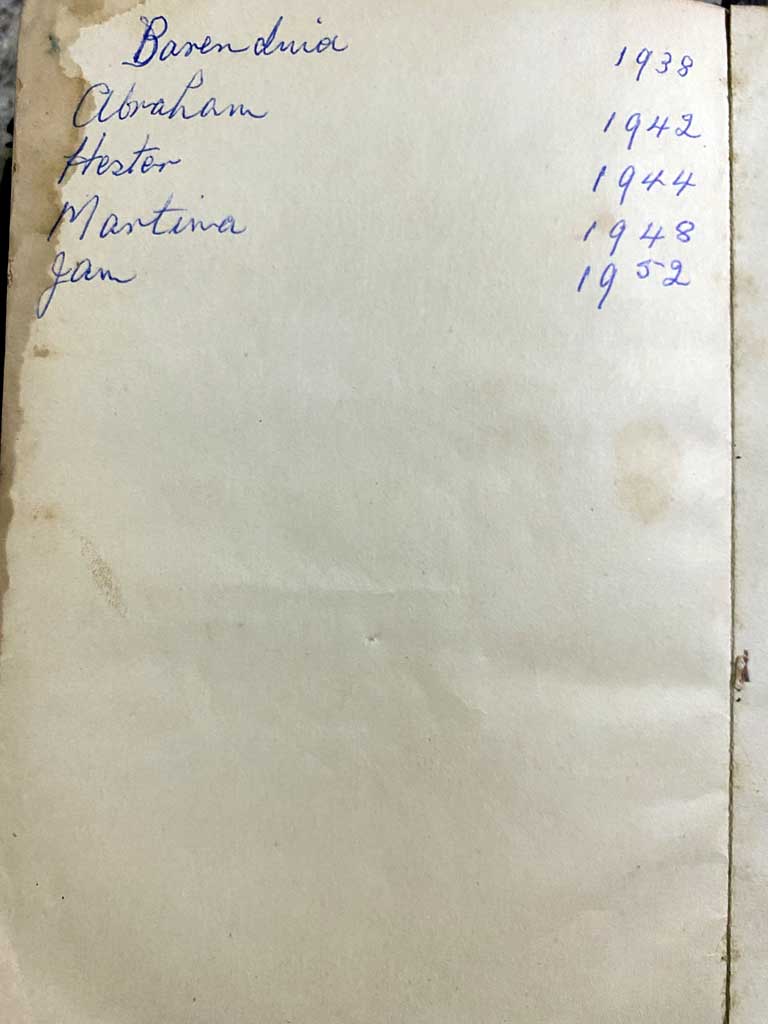 Barendina 1938
Abraham 1942
Hester 1944
Martina 1948
Jan 1952